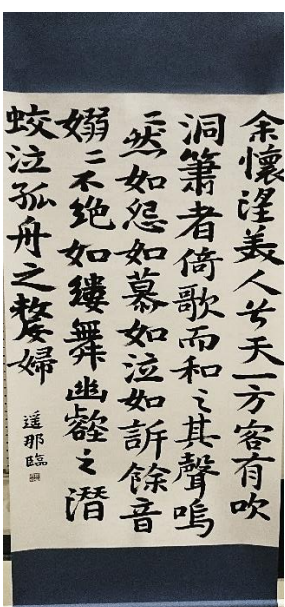 余懷望美人兮天一方客有吹
洞簫者倚歌而和之其聲嗚
〻然如怨如慕如泣如訴餘音
嫋〻不絶如縷舞幽壑之潛
蛟泣孤舟之嫠婦
遥那臨